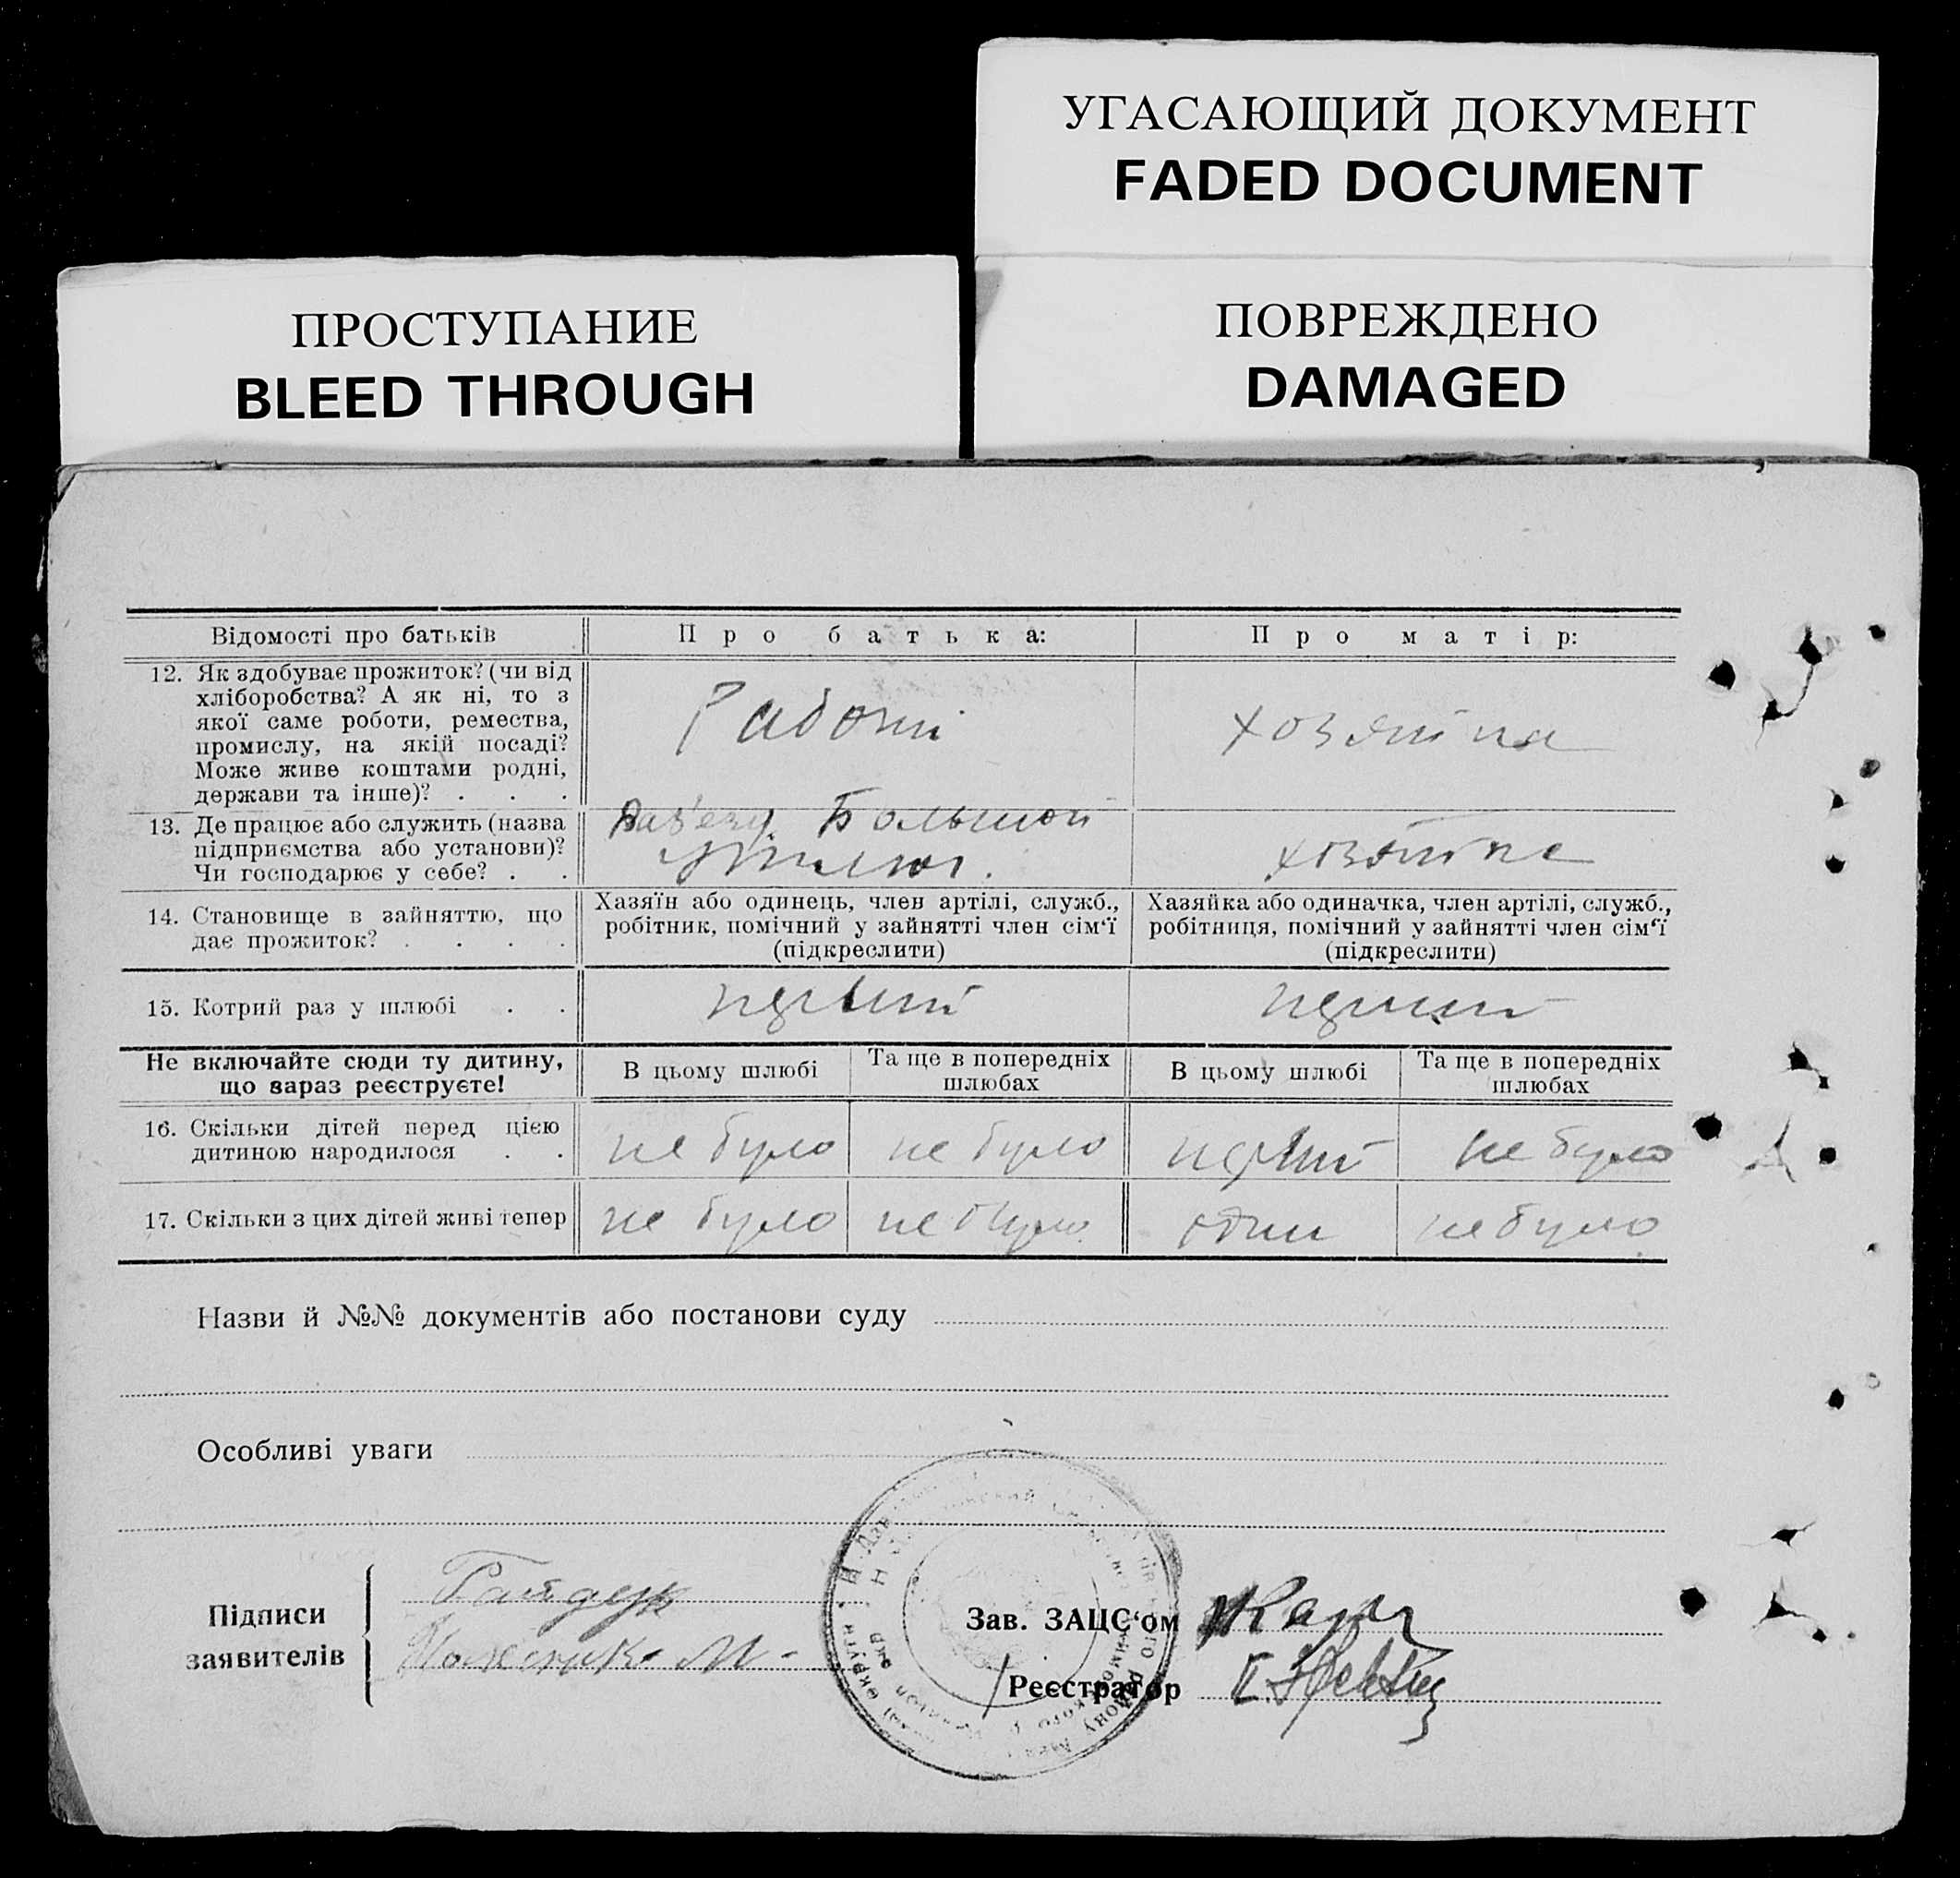 УГАСАЮЩИЙ ДОКУМЕНТ
FADED DOCUMENT
ПРОСТУПАНИЕ
BLEED THROUGH
ПОВРЕЖДЕНО
DAMAGED
Відомості про батьків
Про батька:
Про матір:
12. Як здобуває прожиток? (чи від
хліборобства? А як ні, то з
якої саме роботи, ремества,
промислу, на якій посаді?
Може живе коштами родні,
держави та інше)? . . .
Рабочій
хозяйка
13. Де працює або служить (назва
підприємства або установи)?
Чи господарює у себе? . .
Большой
хозяйка
14. Становище в зайняттю, що
дає прожиток? . . . .
Хазяїн або одинець, член артілі, служб.,
робітник, помічний у зайнятті член сім‘ї
(підкреслити)
Хазяйка або одиначка, член артілі, служб.,
робітниця, помічний у зайнятті член сім‘ї
(підкреслити)
15. Котрий раз у шлюбі . .
перший
перший
Не включайте сюди ту дитину,
що зараз реєструєте!
В цьому шлюбі
Та ще в попередніх
шлюбах
В цьому шлюбі
Та ще в попередніх
шлюбах
16. Скільки дітей перед цією
дитиною народилося . .
не було
не було
не було
17. Скільки з цих дітей живі тепер
не було
не було
один
не було
Назви й №№ документів або постанови суду
Особливі уваги
Підписи
заявителів
Гайдук
Зав. ЗАЦС‘ом
Реєстратор